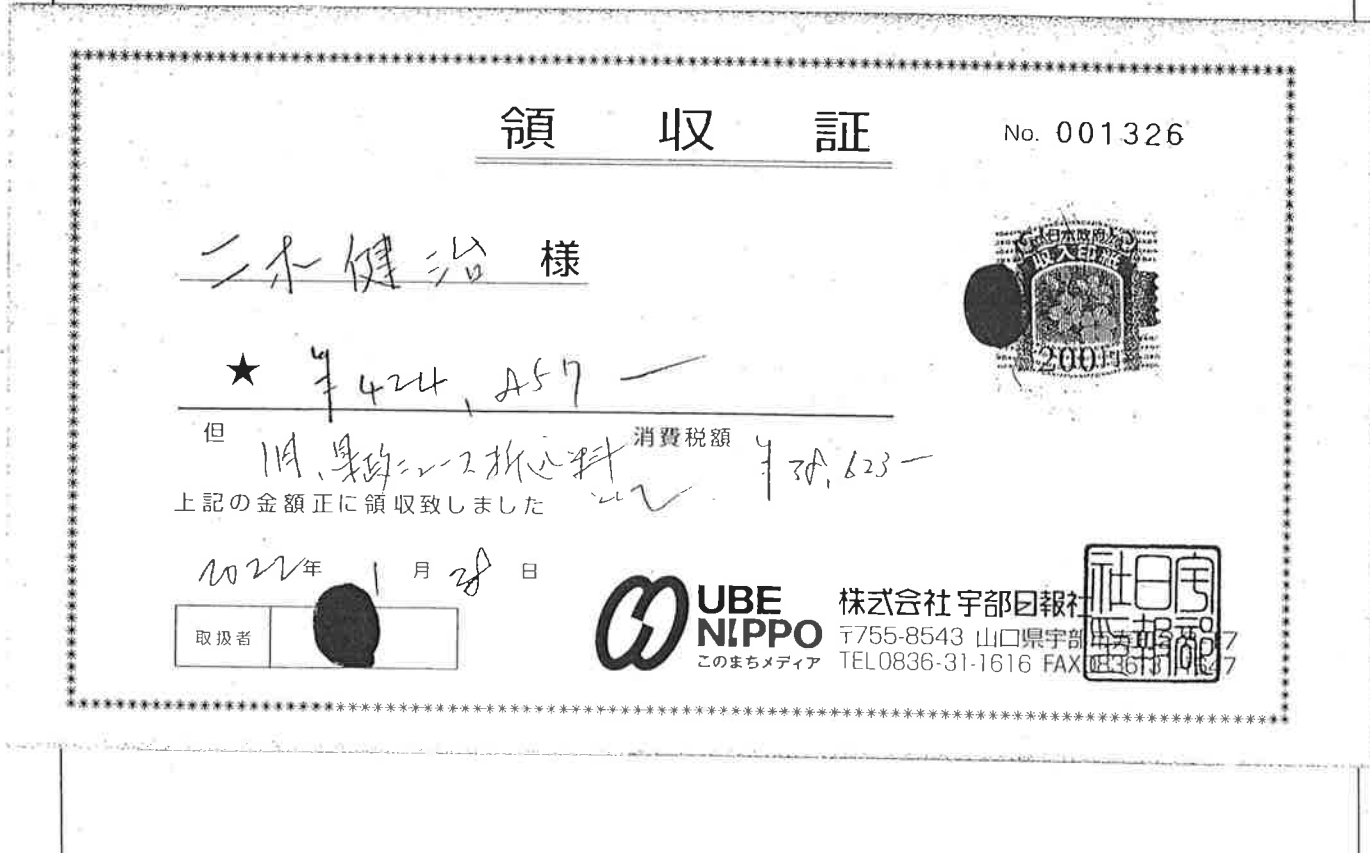 領収証 No. 001326
二木健治 様
日本政府
収入印紙
200円
★ ¥424,857—
但 1月、県政ニュース折込料 消費税額 ¥38,623—
上記の金額正に領収致しました
2022年 1月 28日
取扱者
UBE NIPPO
このまちメディア
株式会社 宇部日報社
〒755-8543 山口県宇部
TEL0836-31-1616 FAX